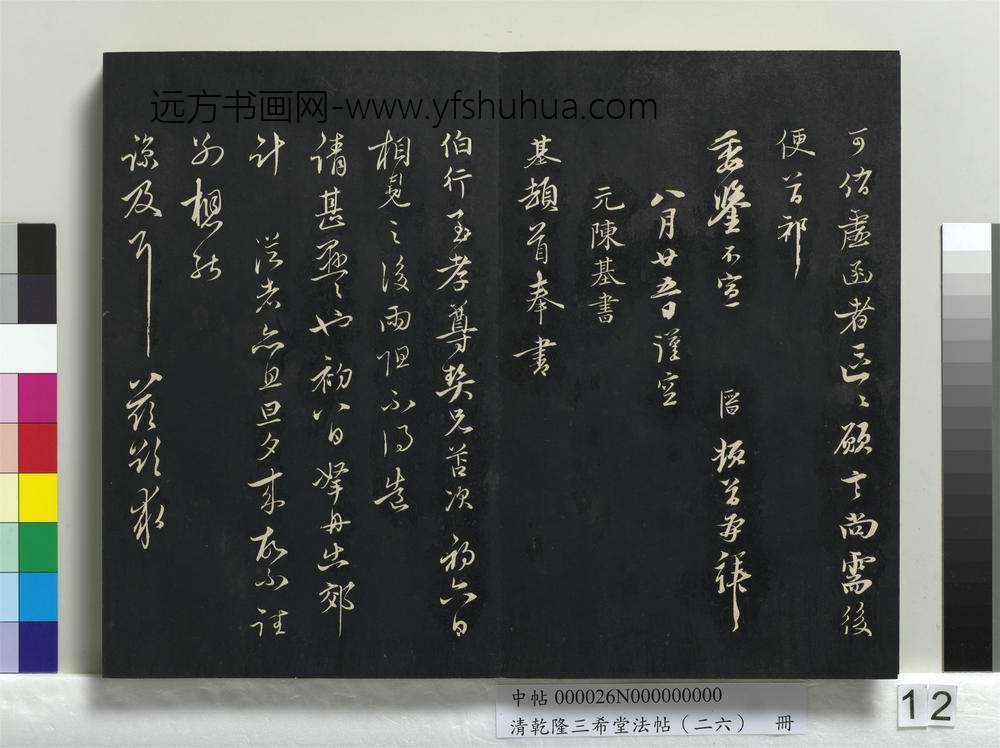 远方书画网-www.yfshuhua.com
可备虚函者匹〻愿言尚需後
便首祁
委鑒不宣
頓首再拜
八月廿五日謹空
元陳基書
基頓首奉書
伯行至孝尊契兄苫次初六日
相見之後雨阻不得造
請甚恐〻也初八日拏舟出郊
計
從者亦且旦夕来故不詿
别想能
諒及耳兹欲求
中帖 000026N000000000
清乾隆三希堂法帖（二六） 冊
12